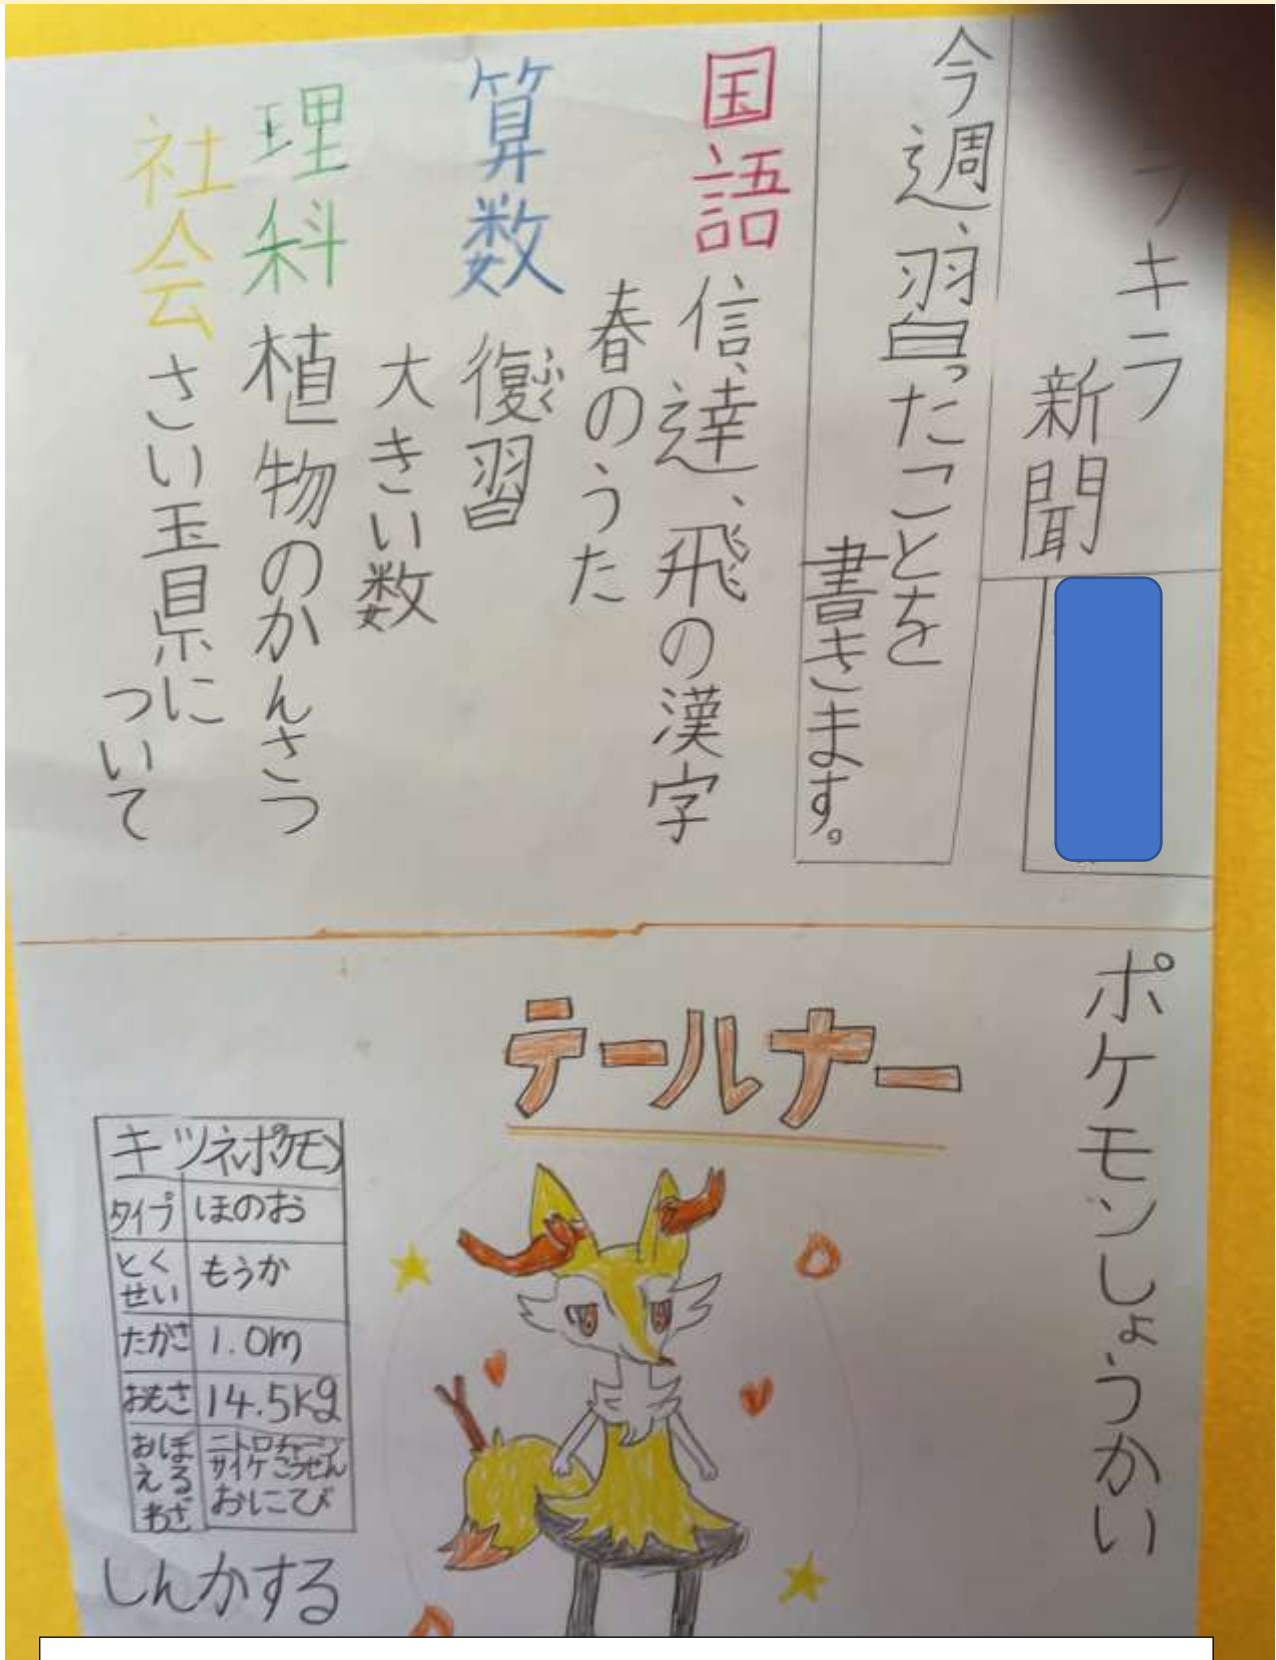 キラ
新聞
今週、習ったことを
書きます。
国語 信、達、飛の漢字
春のうた
算数 復習
ふく
大きい数
理科 植物のかんさつ
社会 さい玉県に
ついて
ポケモンしょうかい
テールナー
キツネポケモン
タイプ ほのお
とくせい もうか
たかさ 1.0m
おもさ 14.5kg
おぼえるわざ ニトロチャージ
サイケこうせん
おにび
しんかする